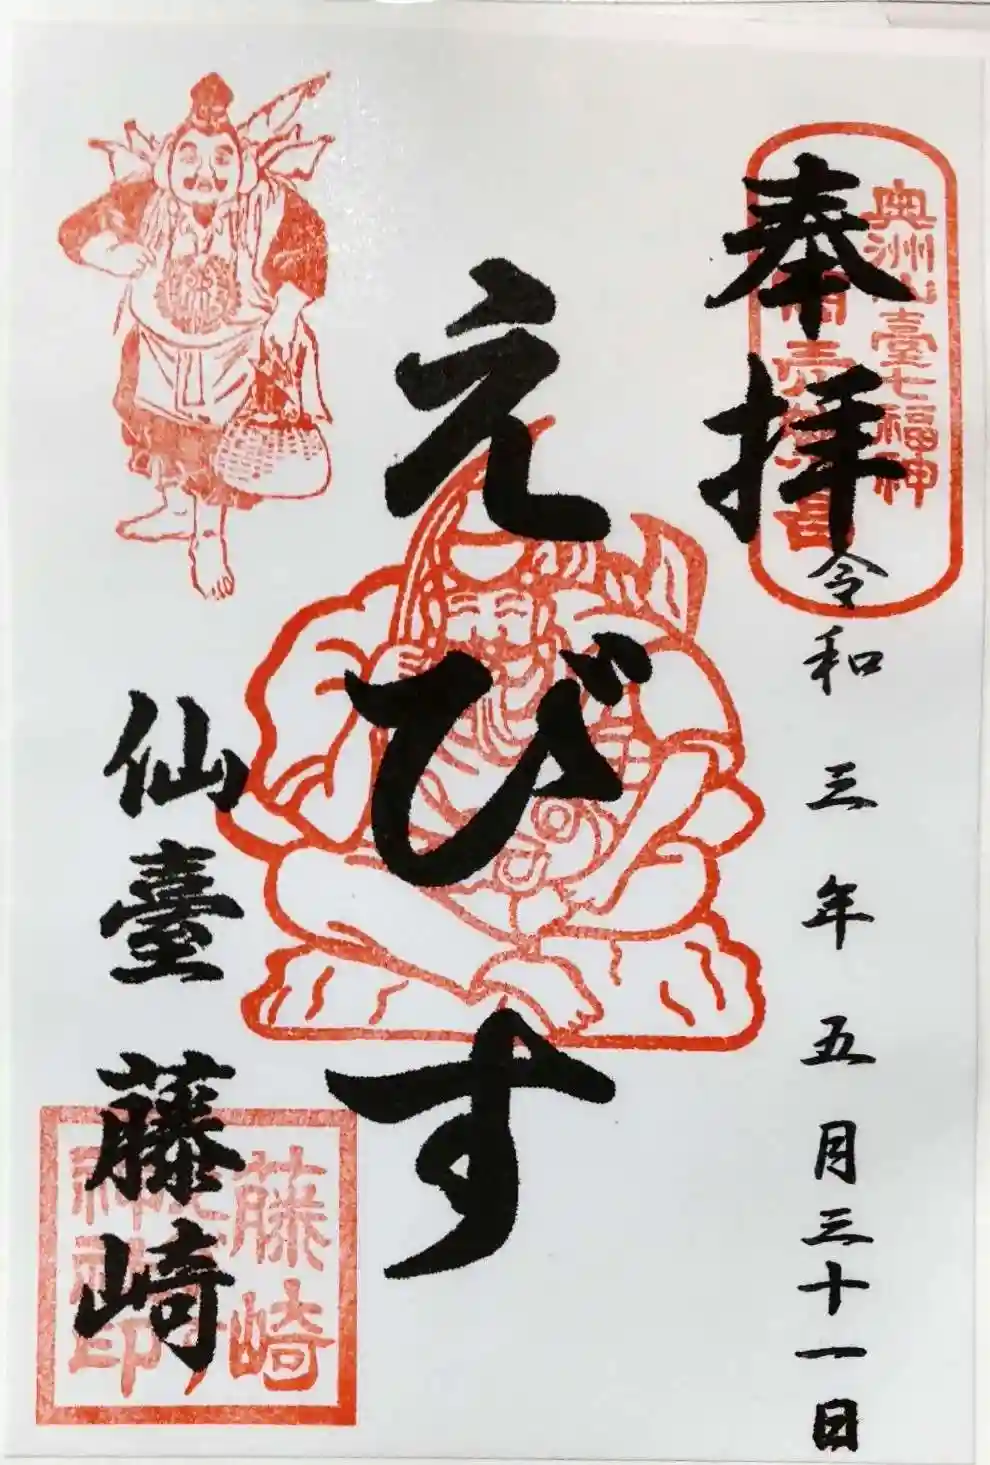 奥洲仙臺七福神
商売繁昌
奉拝
令和三年五月三十一日
えびす
仙臺 藤崎
藤崎